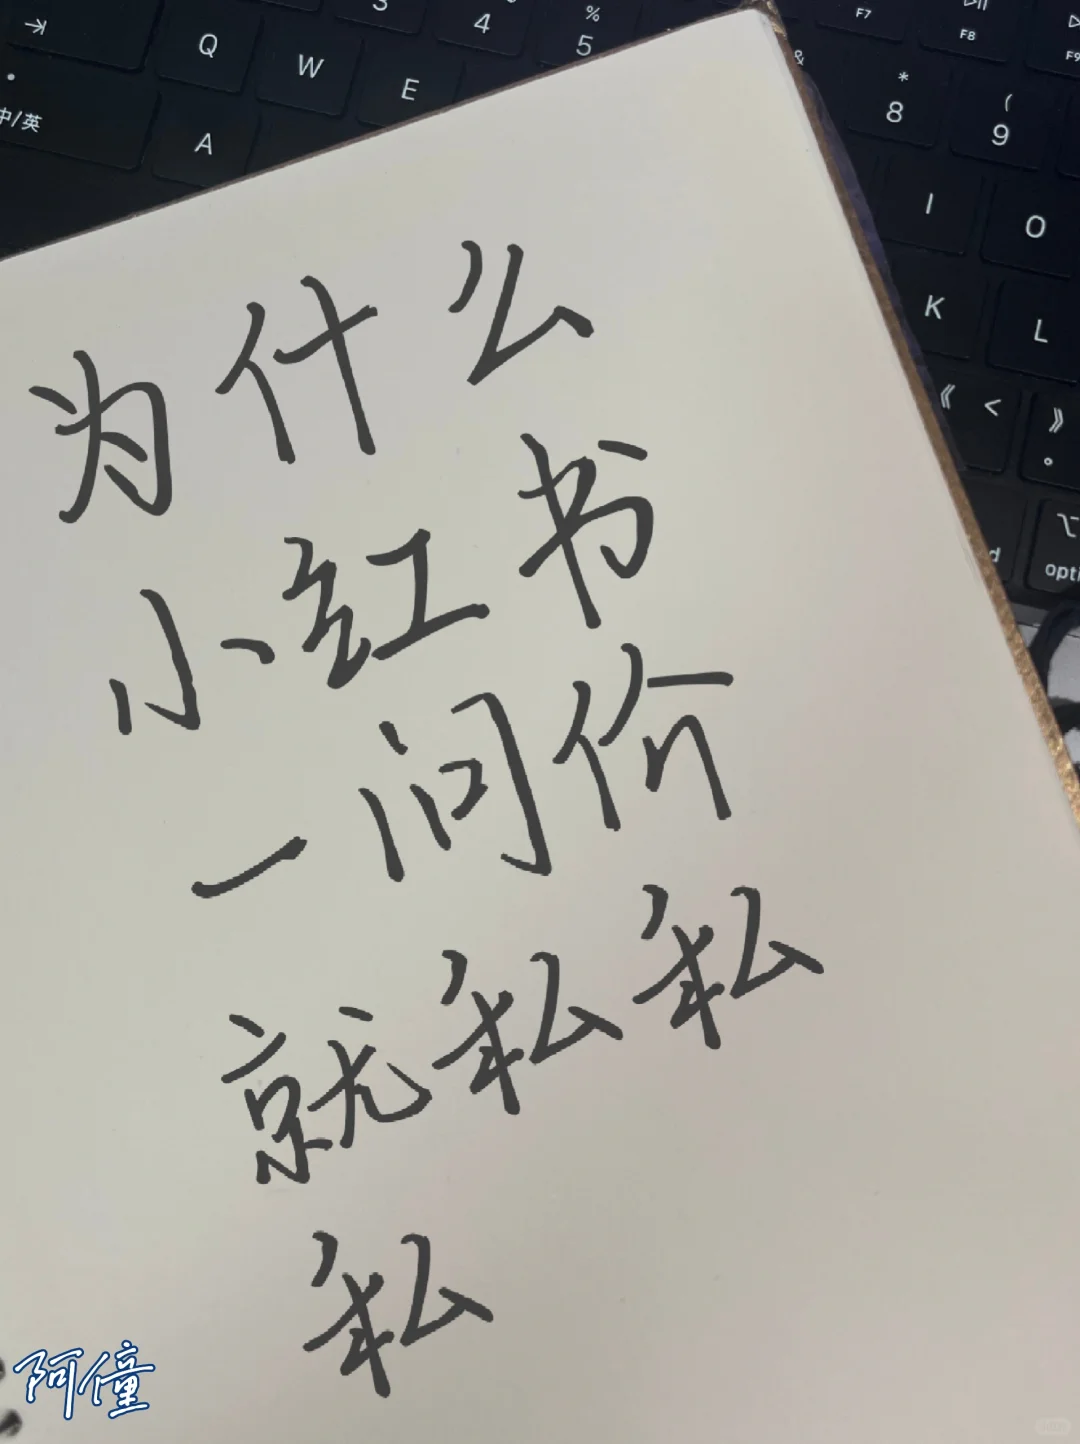 3
4
%
5
F7
F8
F9
Q
W
E
&
*
8
(
9
中/英
A
I
O
K
L
《 <
》
。
opti
为什么
小红书
一问价
就私私
私
阿僮